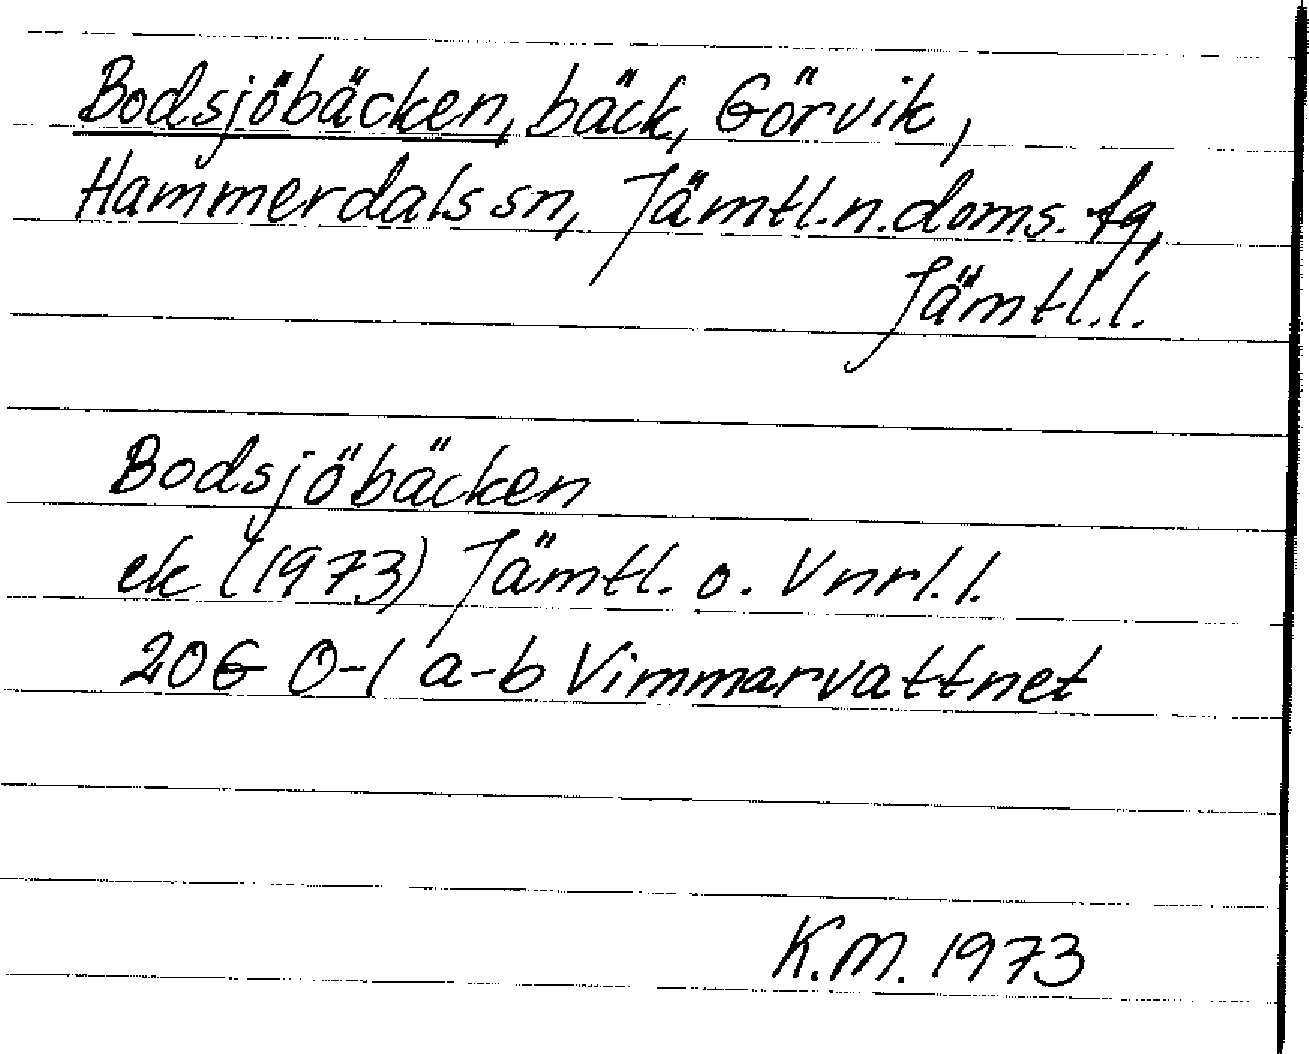 Bodsjöbäcken, bäck, Görvik,
Hammerdals sn, Jämtl.n.doms. fq,
Jämtl.l.
Bodsjöbäcken
ek (1973) Jämtl. o. Vnrl.l.
20G 0-1 a-b Vimmarvattnet
K.M. 1973